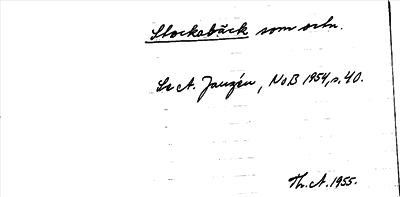 Stockabäck som ortn.
Se A. Janzén, NoB 1954, s. 40.
Th. A. 1955.